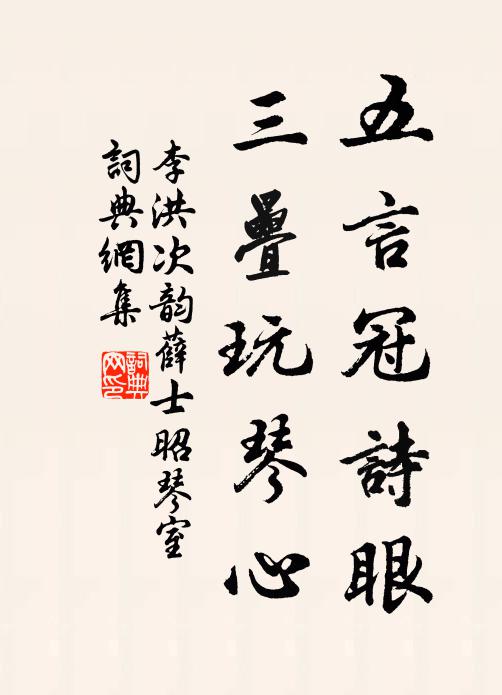 五言冠詩眼
三疊玩琴心
李洪次韵薛士昭琴室
詞典網集
詞典網印